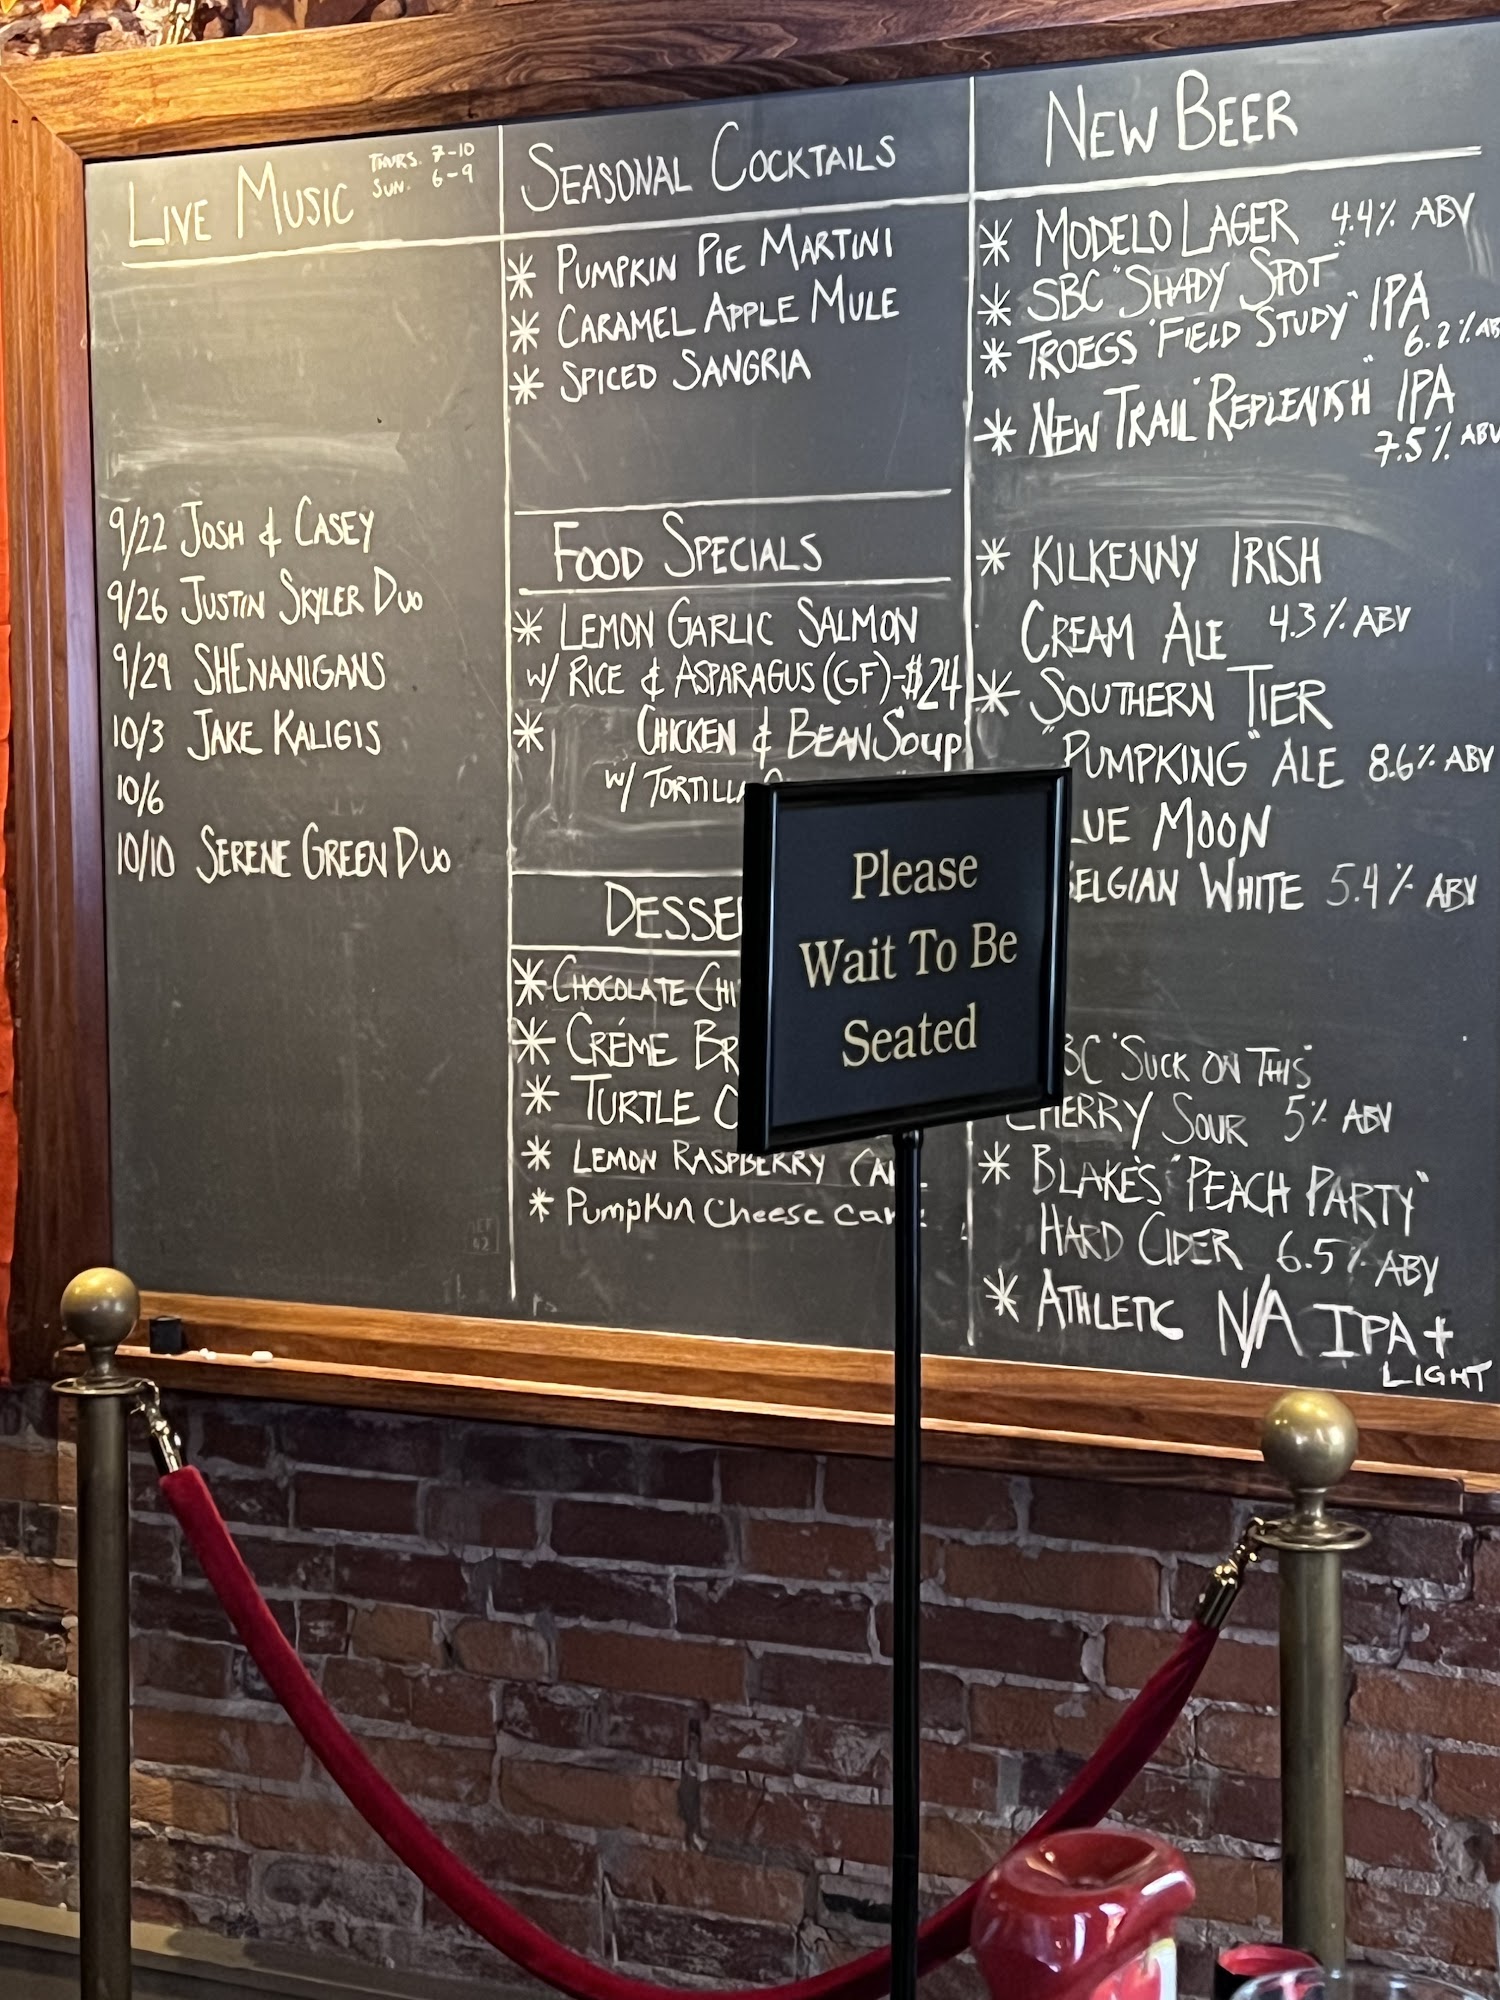 LIVE MUSIC
THURS. 7-10
SUN. 6-9
9/22 JOSH & CASEY
9/26 JUSTIN SKYLER DUO
9/29 SHENANIGANS
10/3 JAKE KALIGIS
10/6
10/10 SERENE GREEN DUO
SEASONAL COCKTAILS
* PUMPKIN PIE MARTINI
* CARAMEL APPLE MULE
* SPICED SANGRIA
FOOD SPECIALS
* LEMON GARLIC SALMON
W/ RICE & ASPARAGUS (GF)-$24
* CHICKEN & BEAN SOUP
W/ TORTILLA
DESSE
* CHOCOLATE CHI
* CRÉME BR
* TURTLE C
* LEMON RASPBERRY CA
* Pumpkin Cheese cake
NEW BEER
* MODELO LAGER 4.4% ABV
* SBC "SHADY SPOT"
* TROEGS "FIELD STUDY" IPA
6.2% AB
* NEW TRAIL "REPLENISH" IPA
7.5% ABV
* KILKENNY IRISH
CREAM ALE 4.3% ABV
* SOUTHERN TIER
"PUMPKING" ALE 8.6% ABV
LUE MOON
BELGIAN WHITE 5.4% ABV
BC "SUCK ON THIS"
CHERRY SOUR 5% ABV
* BLAKE'S "PEACH PARTY"
HARD CIDER 6.5% ABV
* ATHLETIC N/A IPA +
LIGHT
Please
Wait To Be
Seated